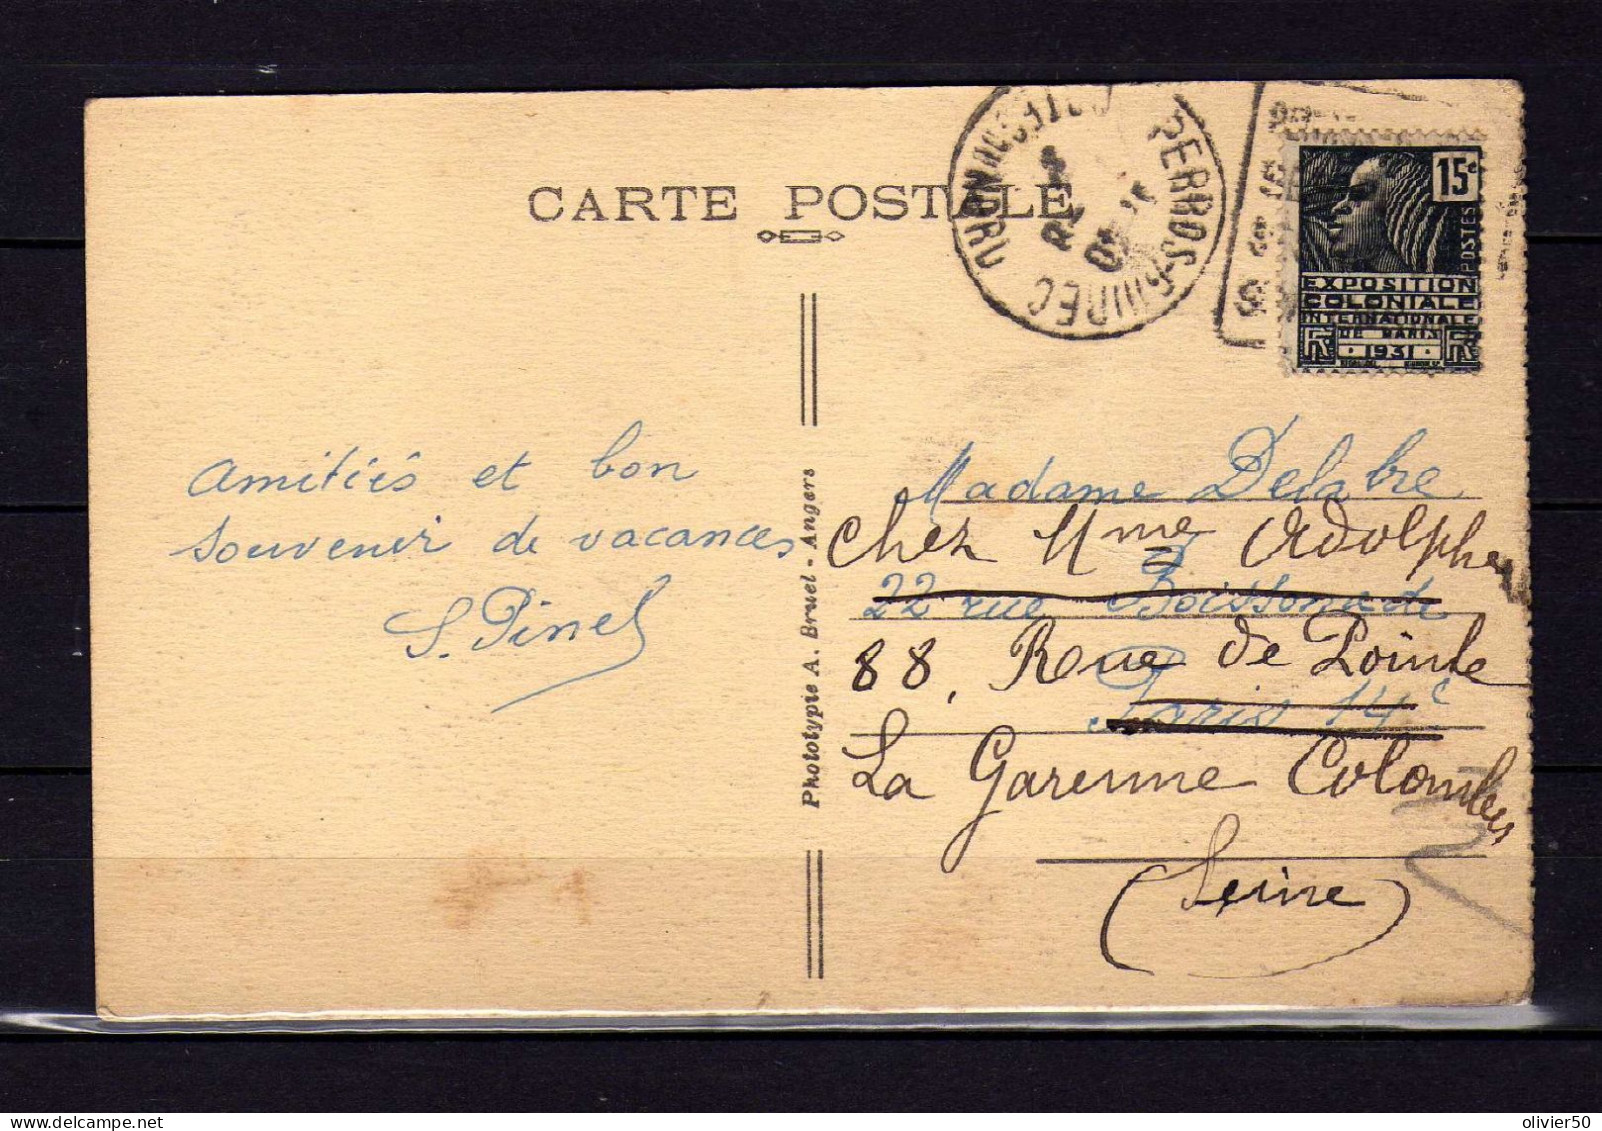 CARTE POSTALE
PERROS-GUIREC
15c
POSTES
EXPOSITION
COLONIALE
INTERNATIONALE
DE PARIS
1931
RF
RF
Amitiés et bon
souvenir de vacances
S. Pinel
Phototypie A. Bruel - Angers
Madame Delabre
chez Mme Adolphe
22 rue Boissonade
88, Rue de Pointe
Paris 14e
La Garenne Colombes
(Seine)
olivier50